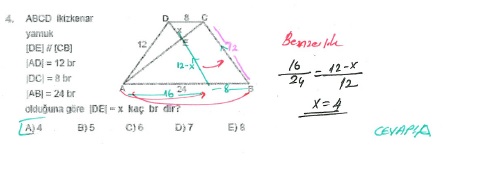 4. ABCD ikizkenar
yamuk
|DE| // |CB|
|AD| = 12 br
|DC| = 8 br
|AB| = 24 br
olduğuna göre |DE| = x kaç br dir?
A) 4 B) 5 C) 6 D) 7 E) 8
D 8 C
x
E
12
12
12-x
A 24 B
16 8
Benzerlik
16/24 = 12-x/12
x=4
CEVAP A